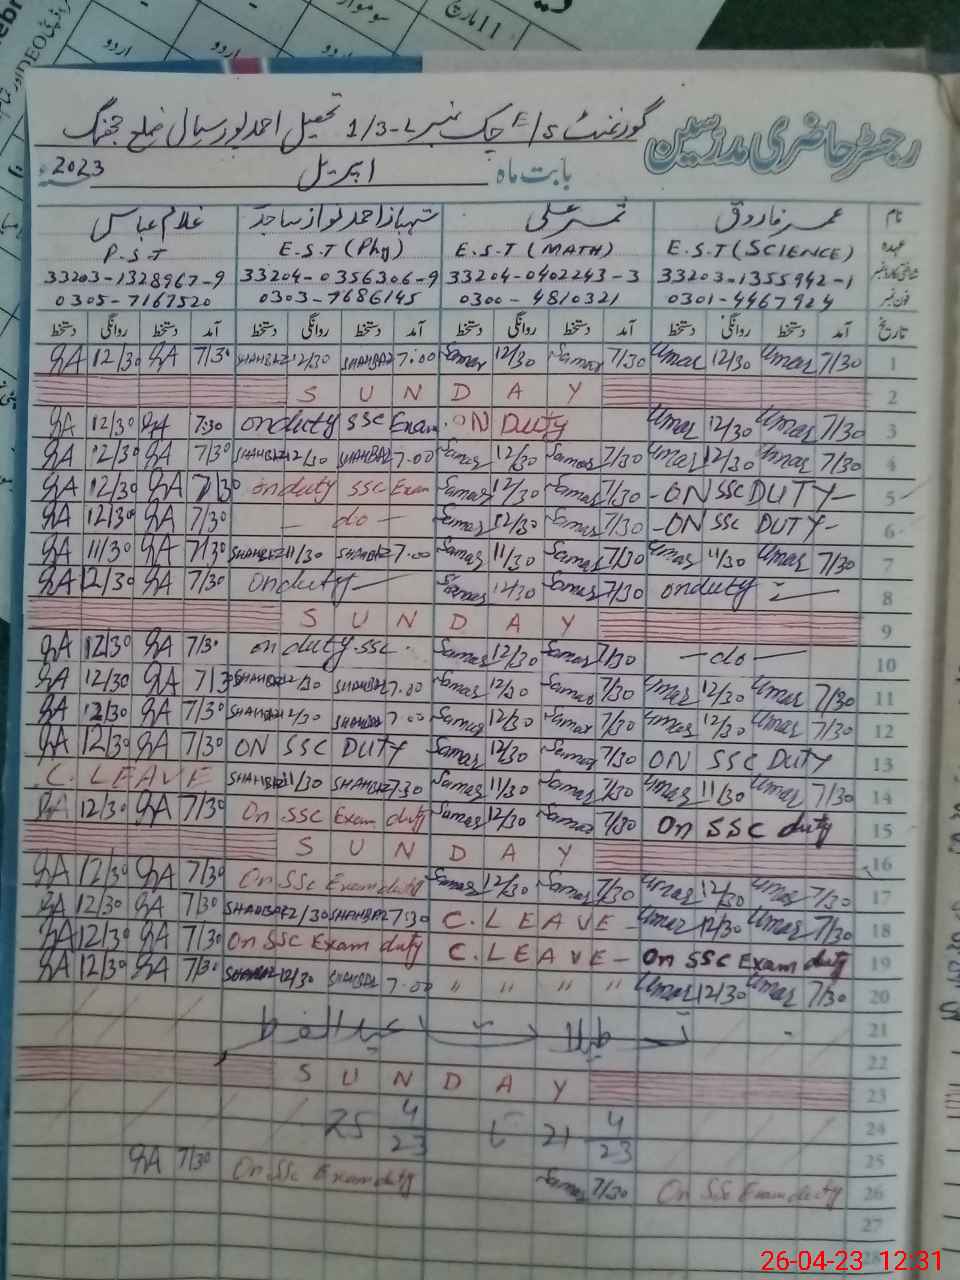 رجسٹر حاضری مدرسین
گورنمنٹ E/S چک نمبر 1/3-L تحصیل احمد پور سیال ضلع جھنگ
بابت ماہ اپریل 2023
نام عمر فاروق ثمر علی شہباز احمد نواز ساجد غلام عباس
عہدہ E.S.T (SCIENCE) E.S.T (MATH) E.S.T (Phy) P.S.T
33203-1355942-1 33204-0402243-3 33204-0356306-9 33203-1328967-9
فون نمبر 0301-4467924 0300-4810321 0303-7686145 0305-7167520
تاریخ آمد دستخط روانگی دستخط آمد دستخط روانگی دستخط آمد دستخط روانگی دستخط آمد دستخط روانگی دستخط
1 7/30 Umar 12/30 Umar 7/30 Samar 12/30 Samar 7:00 SHAHBAZ 12/30 SHAHBAZ 7/30 GA 12/30 GA
2 SUNDAY
3 7/30 Umar 12/30 Umar ON DUTY onduty SSC Exam. 7:30 GA 12/30 GA
4 7/30 Umar 12/30 Umar 7/30 Samar 12/30 Samar 7:00 SHAHBAZ 12/30 SHAHBAZ 7/30 GA 12/30 GA
5 -ON SSC DUTY- 7/30 Samar 12/30 Samar onduty SSC Exam 7/30 GA 12/30 GA
6 -ON SSC DUTY- 7/30 Samar 12/30 Samar - do - 7/30 GA 12/30 GA
7 7/30 Umar 11/30 Umar 7/30 Samar 11/30 Samar 7:00 SHAHBAZ 11/30 SHAHBAZ 7/30 GA 11/30 GA
8 onduty 7/30 Samar 12/30 Samar onduty 7/30 GA 12/30 GA
9 SUNDAY
10 - do - 7/30 Samar 12/30 Samar on duty ssc. 7/30 GA 12/30 GA
11 7/30 Umar 12/30 Umar 7/30 Samar 12/30 Samar 7:00 SHAHBAZ 12/30 SHAHBAZ 7/30 GA 12/30 GA
12 7/30 Umar 12/30 Umar 7/30 Samar 12/30 Samar 7:00 SHAHBAZ 12/30 SHAHBAZ 7/30 GA 12/30 GA
13 ON SSC DUTY 7/30 Samar 12/30 Samar ON SSC DUTY 7/30 GA 12/30 GA
14 7/30 Umar 11/30 Umar 7/30 Samar 11/30 Samar 7:30 SHAHBAZ 11/30 SHAHBAZ C. LEAVE
15 On SSC duty 7/30 Samar 12/30 Samar On SSC Exam duty 7/30 GA 12/30 GA
16 SUNDAY
17 7/30 Umar 12/30 Umar 7/30 Samar 12/30 Samar On SSc Exam duty 7/30 GA 12/30 GA
18 7/30 Umar 12/30 Umar C. LEAVE - 7:30 SHAHBAZ 12/30 SHAHBAZ 7/30 GA 12/30 GA
19 On SSC Exam duty C. LEAVE - On SSC Exam duty 7/30 GA 12/30 GA
20 7/30 Umar 12/30 Umar " " " " 7:00 SHAHBAZ 12/30 SHAHBAZ 7/30 GA 12/30 GA
21 تعطیلات عیدالفطر
22
23 SUNDAY
24 21 4/23 تا 25 4/23
25
26 On SSc Exam duty 7/30 Samar On SSc Exam duty 7/30 GA
27
28
26-04-23 12:31